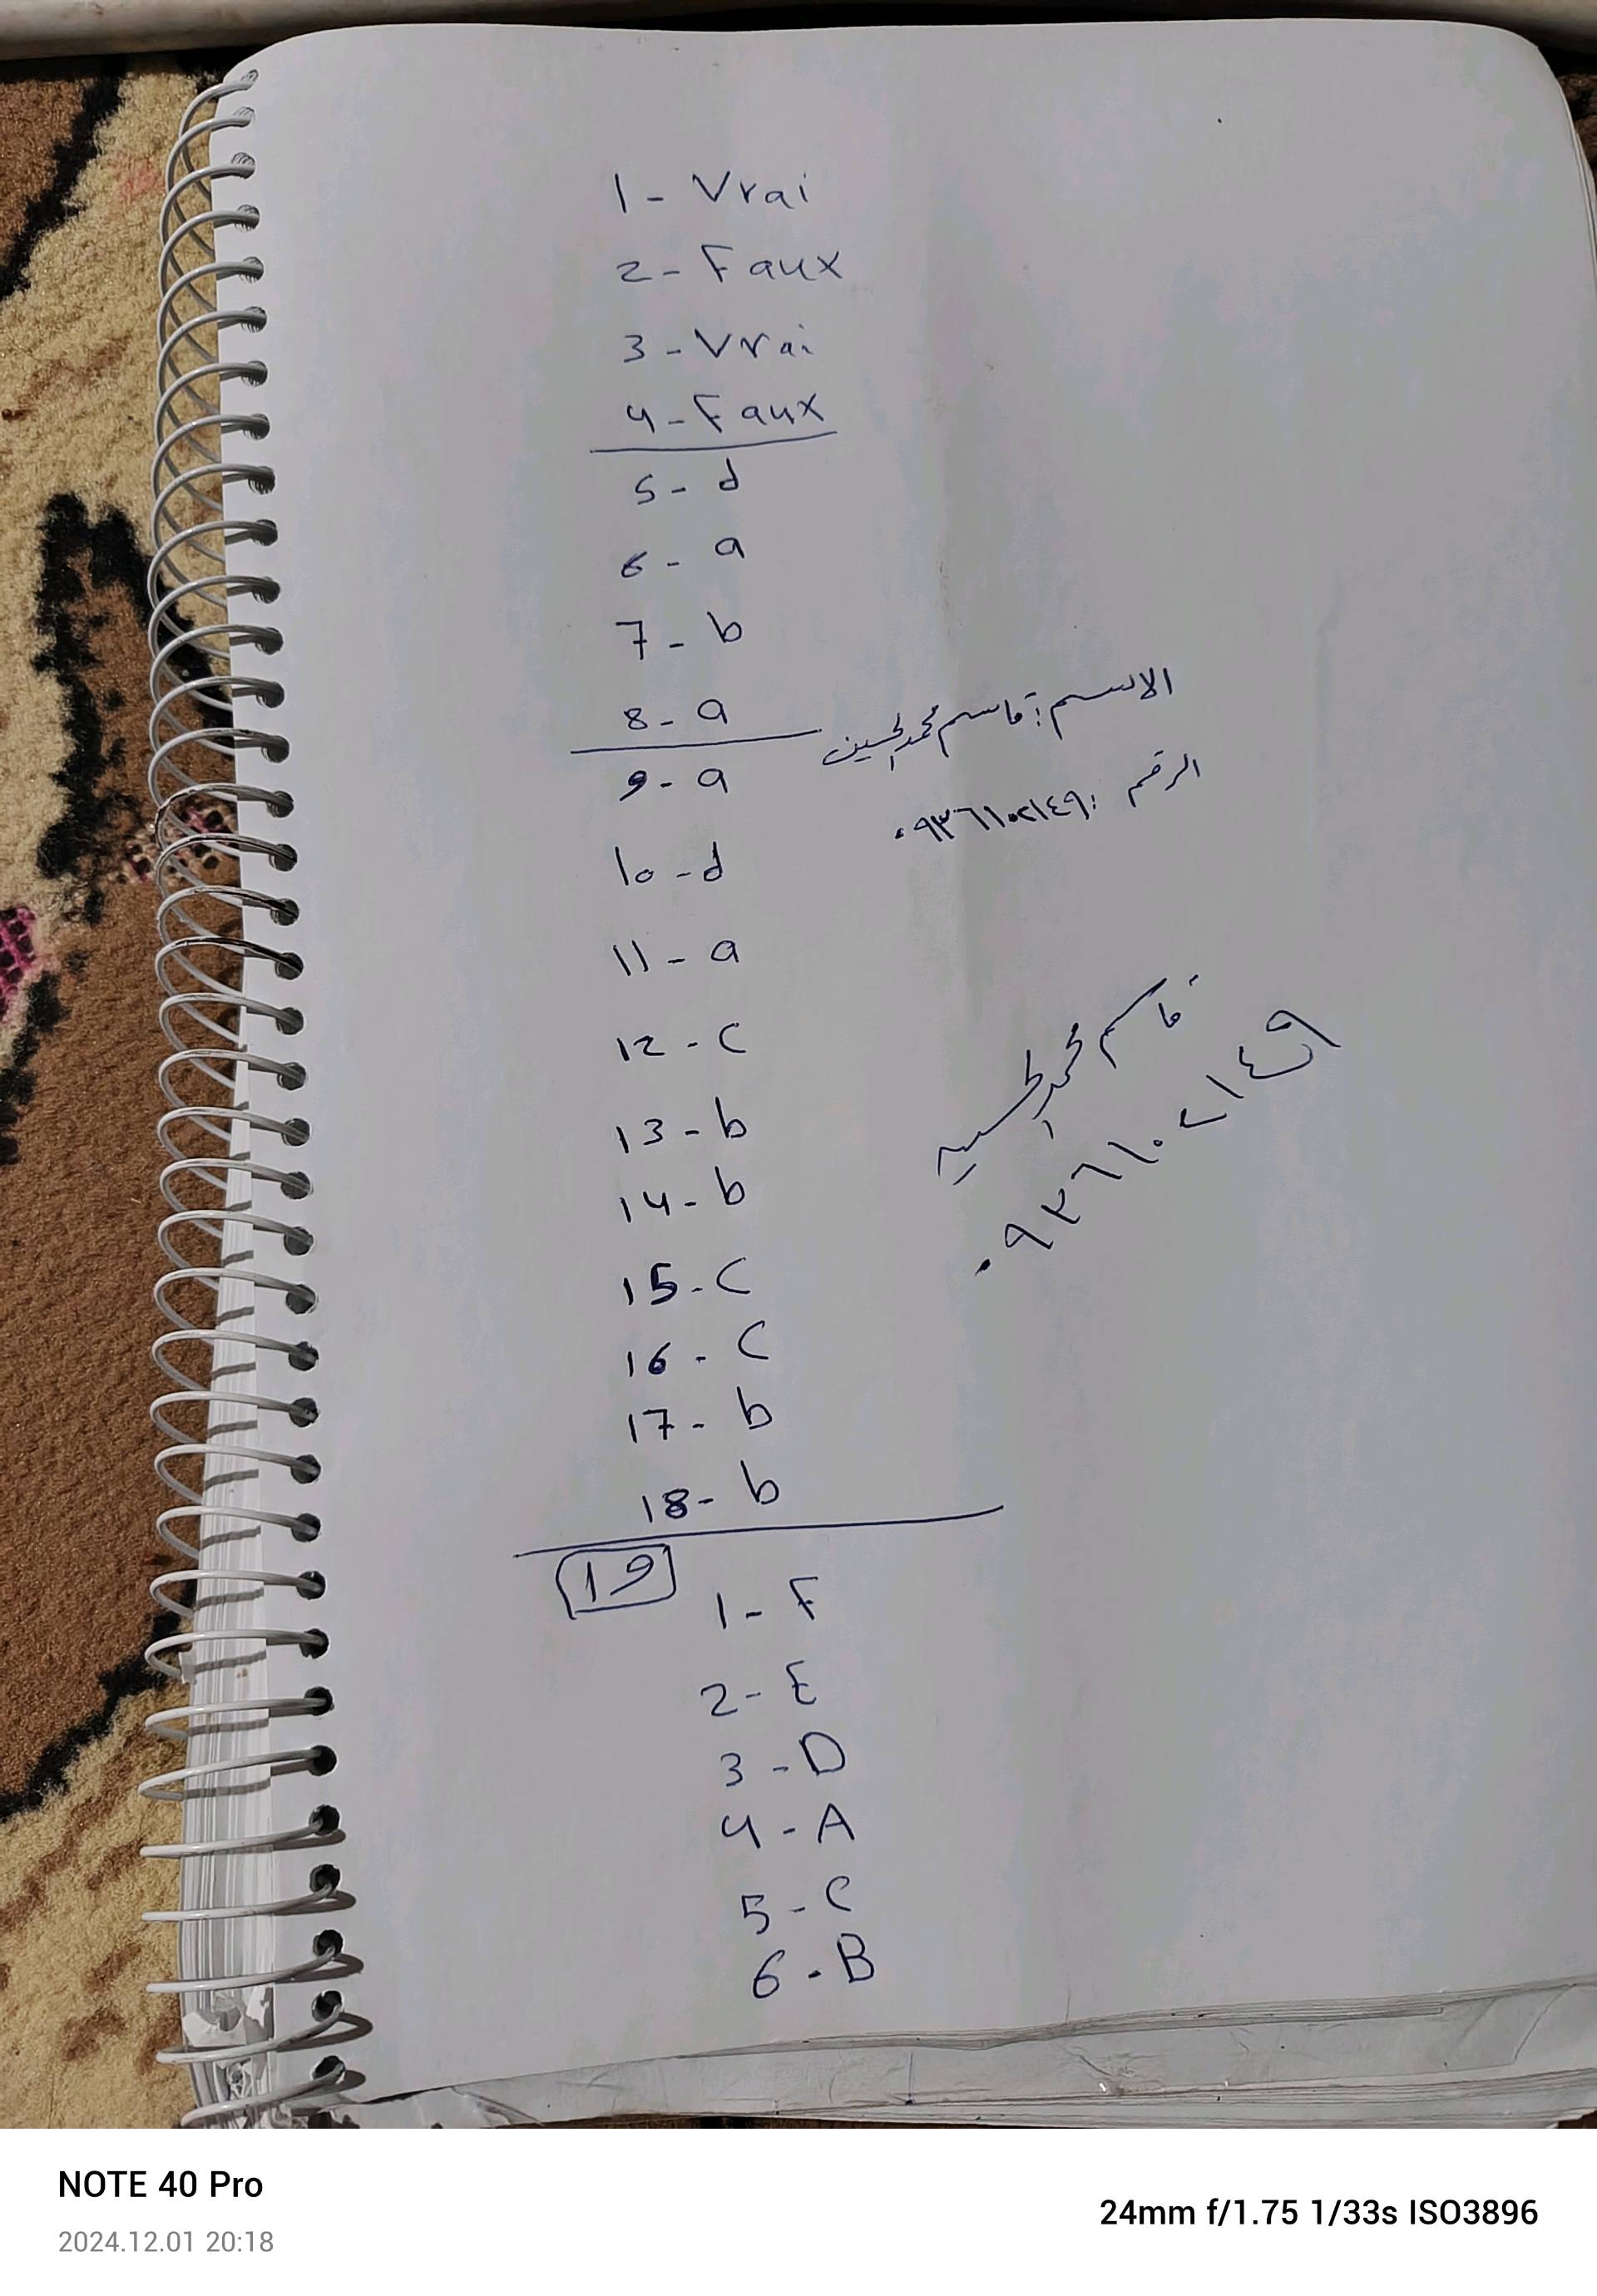 1 - Vrai
2 - Faux
3 - Vrai
4 - Faux
5 - d
6 - a
7 - b
8 - a
الاسم : قاسم محمد الحسين
الرقم : ٠٩٣٦١٠٢١٤٩
9 - a
10 - d
11 - a
12 - c
13 - b
14 - b
15 - c
16 - c
17 - b
18 - b
قاسم محمد الحسين
٠٩٣٦١٠٢١٤٩
19
1 - F
2 - E
3 - D
4 - A
5 - C
6 - B
NOTE 40 Pro
2024.12.01 20:18
24mm f/1.75 1/33s ISO3896